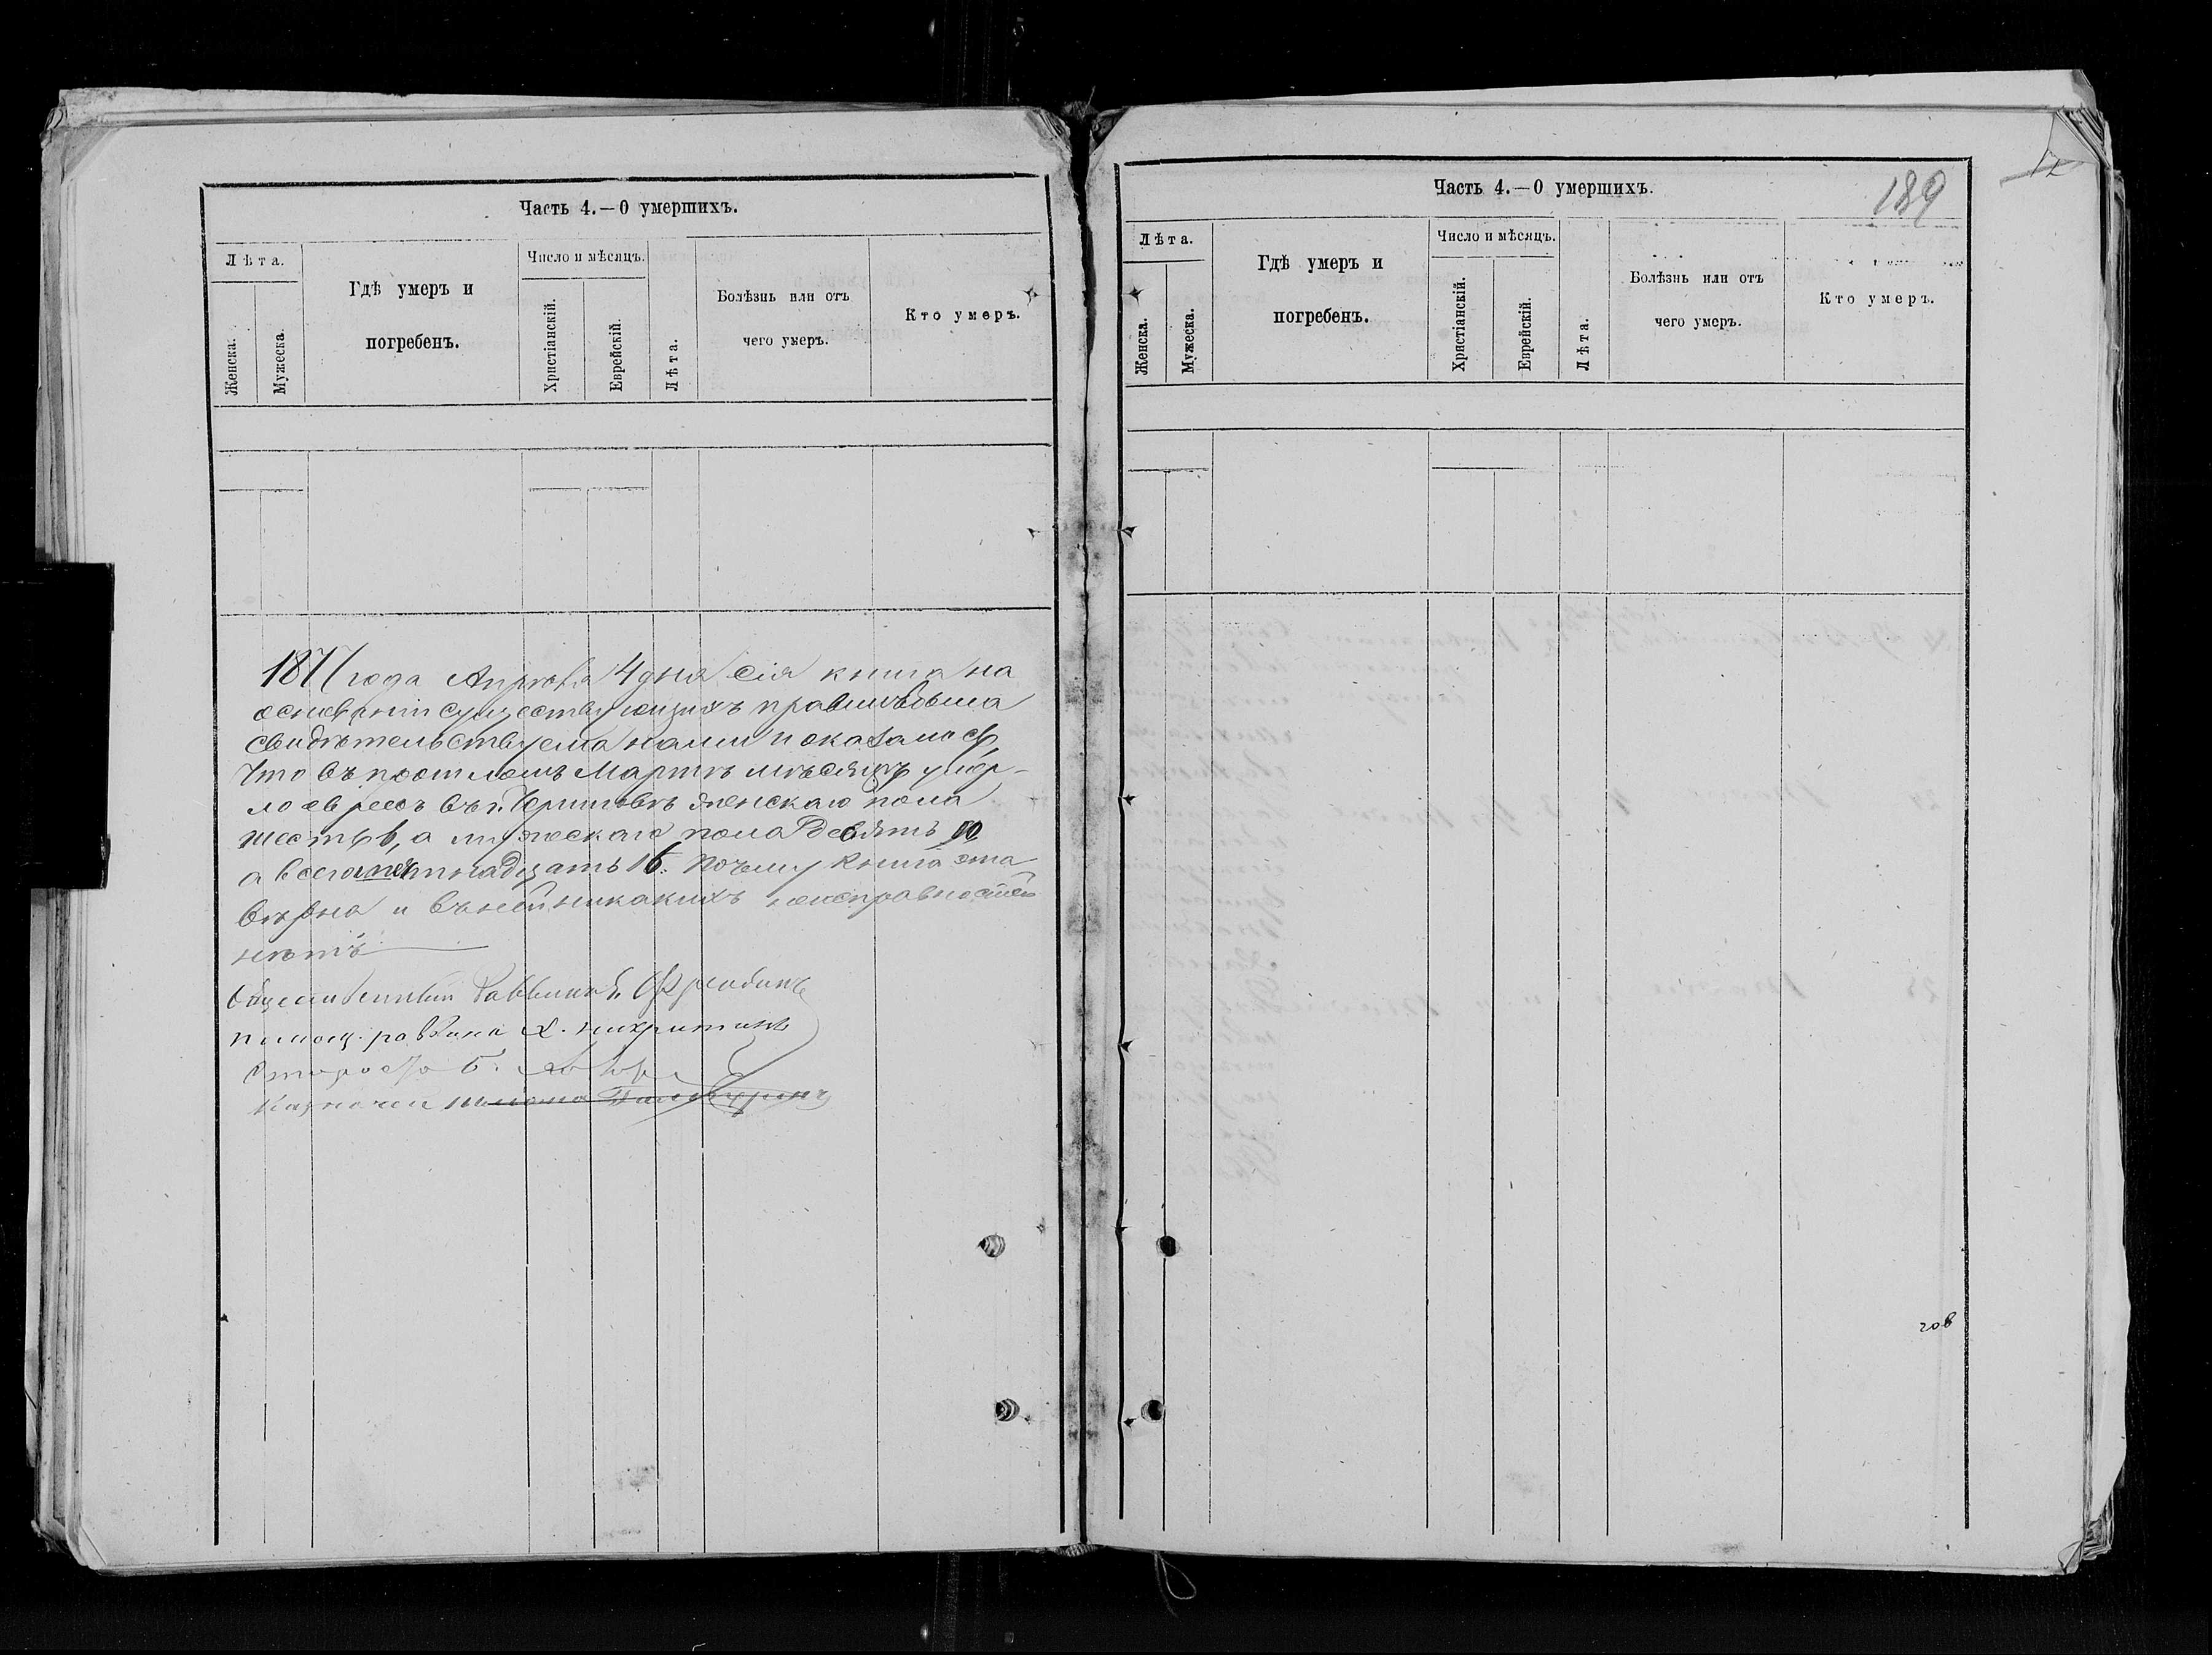 Часть 4.—О умершихъ.
Лѣта.
Женска.
Мужеска.
Гдѣ умеръ и
погребенъ.
Число и мѣсяцъ.
Христіанскій.
Еврейскій.
Лѣта.
Болѣзнь или отъ
чего умеръ.
Кто умеръ.
1877 года Апрѣля 4 дня сія книга на
основаніи существующихъ правилъ была
свидѣтельствуема нами и оказалось,
что въ прошломъ Мартѣ мѣсяцѣ умер-
ло евреевъ въ г. женскаго пола
шесть 6, а мужескаго пола
а всего 16. Почему книга эта
вѣрна и въ ней никакихъ неисправностей
нѣтъ
Общественный Раввинъ
помощ. раввина
Староста Б.
Казначей
Часть 4.—О умершихъ.
189
Лѣта.
Женска.
Мужеска.
Гдѣ умеръ и
погребенъ.
Число и мѣсяцъ.
Христіанскій.
Еврейскій.
Лѣта.
Болѣзнь или отъ
чего умеръ.
Кто умеръ.
гов